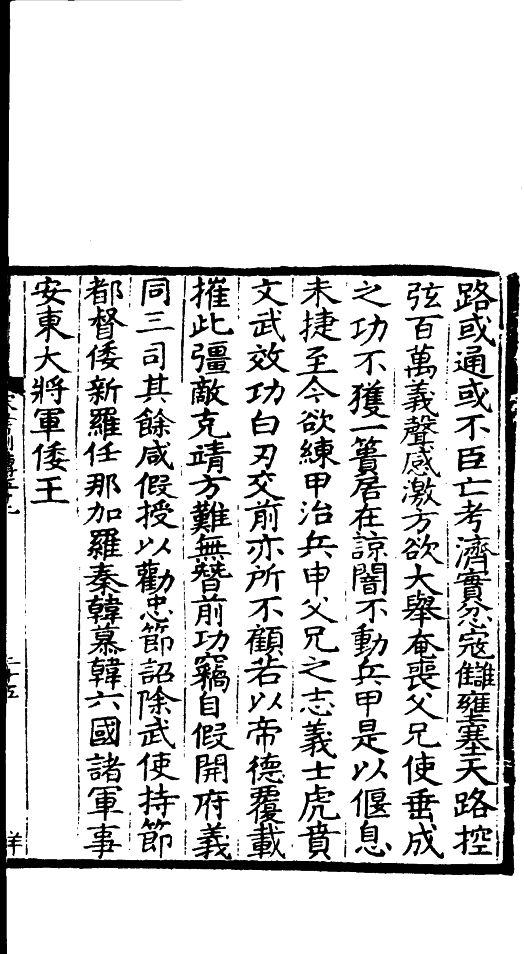 路或通或不臣亡考濟實忿寇讎壅塞天路控
弦百萬義聲感激方欲大舉奄喪父兄使垂成
之功不獲一簣居在諒闇不動兵甲是以偃息
未捷至今欲練甲治兵申父兄之志義士虎賁
文武效功白刃交前亦所不顧若以帝德覆載
摧此彊敵克靖方難無替前功竊自假開府義
同三司其餘咸假授以勸忠節詔除武使持節
都督倭新羅任那加羅秦韓慕韓六國諸軍事
安東大將軍倭王